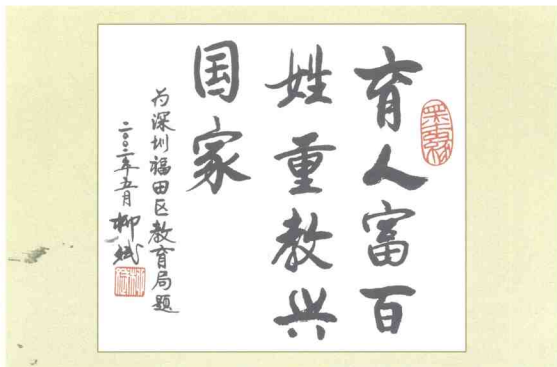 育人富百
姓重教兴
国家
为深圳福田区教育局题
二〇〇二年五月 柳斌